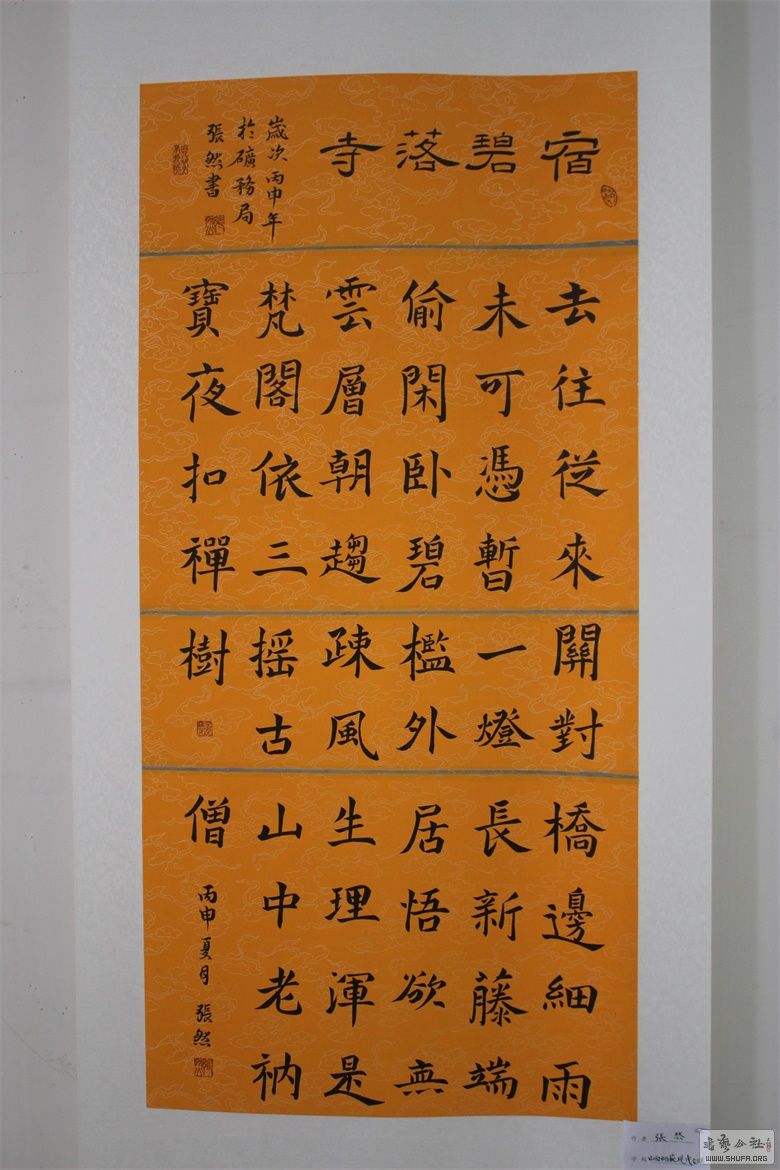 宿碧落寺
歲次丙申年
於礦務局
張然書
去往從來
未可憑暫
偷閑卧碧
雲層朝趨
梵閣依三
寶夜扣禪
關對
一燈
檻外
疎風
搖古
樹
橋邊細雨
長新藤端
居悟欲無
生理渾是
山中老衲
僧
丙申夏月 張然
作者 張然
書藝公社
WWW.SHUFA.ORG